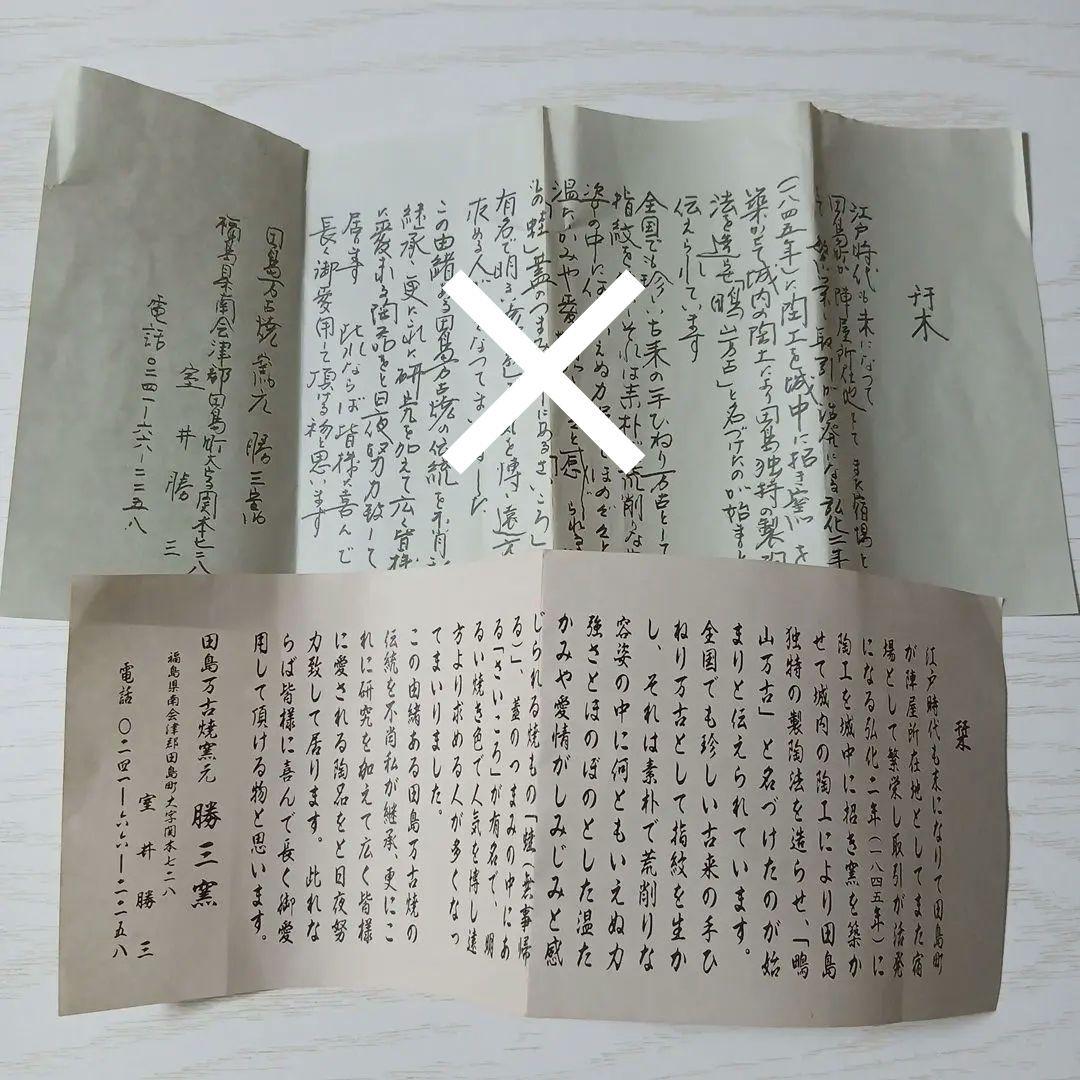 江戸時代も末になつて
田島町が陣屋所在地として また宿場と
して繁栄し 取引が活発になる弘化二年
(一八四五年)に陶工を城中に招き窯を
築かせて城内の陶工により田島独特の製陶
法を造らせ「鴫山万古」と名づけたのが始まりと
伝えられています
全国でも珍しい古来の手ひねり万古として
指紋を それは素朴で荒削りな
姿の中に えぬ力 ほのぼのと
温たかみや愛 感じられる
の「蛙」蓋のつまみ にある「さいころ」
有名で明るい 人気を博し遠方
求める人が なつてまいりました
この由緒ある田島万古焼の伝統を不肖
継承、更にこれに研究を加えて広く皆様
に愛される陶 をと日夜努力致して
居ります 此れならば皆様に喜んで
長く御愛用して頂ける物と思います
田島万古焼窯元 勝三窯
福島県南会津郡田島町大字関本七二八
室井勝三
電話〇二四一ー六六ー二一五八
栞
江戸時代も末になりて田島町
が陣屋所在地としてまた宿
場として繁栄し取引が活発
になる弘化二年(一八四五年)に
陶工を城中に招き窯を築か
せて城内の陶工により田島
独特の製陶法を造らせ、「鴫
山万古」と名づけたのが始
まりと伝えられています。
全国でも珍しい古来の手ひ
ねり万古として指紋を生か
し、それは素朴で荒削りな
容姿の中に何ともいえぬ力
強さとほのぼのとした温た
かみや愛情がしみじみと感
じられる焼もの「蛙(無事帰
る)」、蓋のつまみの中にあ
る「さいころ」が有名で、明
るい焼き色で人気を博し遠
方より求める人が多くなっ
てまいりました。
この由緒ある田島万古焼の
伝統を不肖私が継承、更にこ
れに研究を加えて広く皆様
に愛される陶名をと日夜努
力致して居ります。此れな
らば皆様に喜んで長く御愛
用して頂ける物と思います。
田島万古焼窯元 勝三窯
福島県南会津郡田島町大字関本七二八
室井勝三
電話 〇二四一ー六六ー二一五八